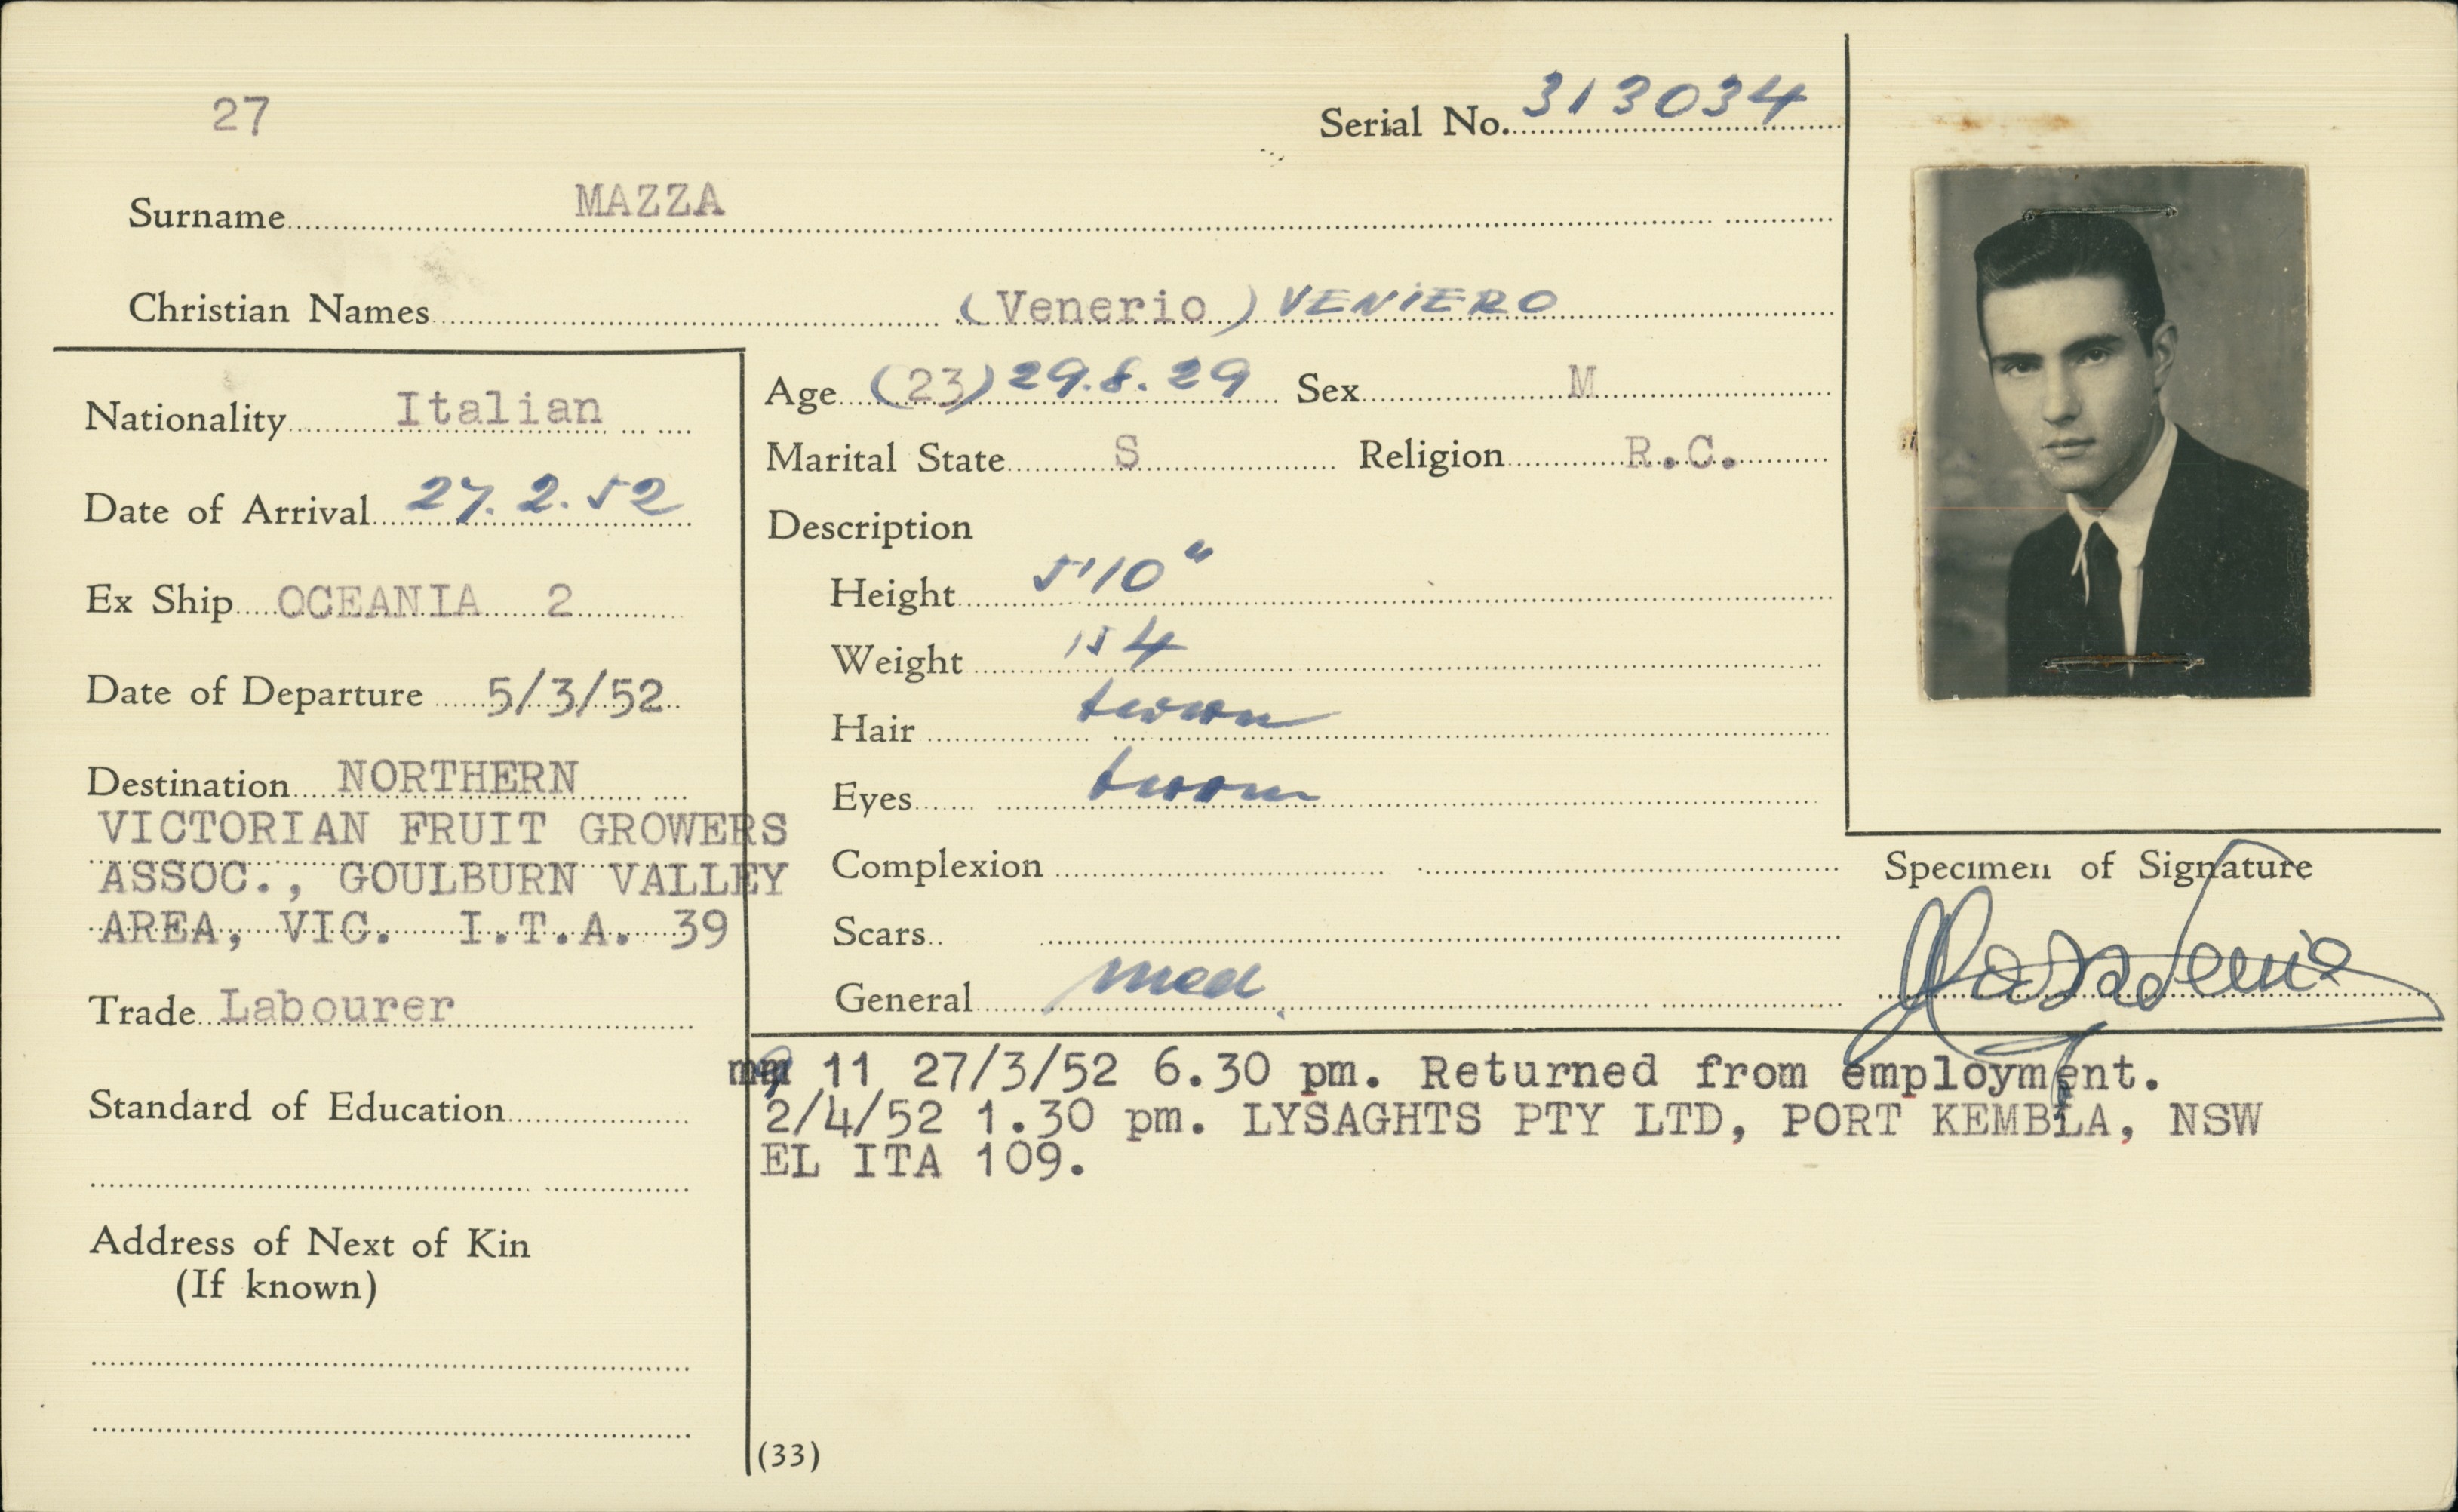 27
Serial No. 313034
Surname MAZZA
Christian Names (Venerio) VENIERO
Nationality Italian
Date of Arrival 27.2.52
Ex Ship OCEANIA 2
Date of Departure 5/3/52
Destination NORTHERN
VICTORIAN FRUIT GROWERS
ASSOC., GOULBURN VALLEY
AREA, VIC. I.T.A. 39
Trade Labourer
Standard of Education
Address of Next of Kin
(If known)
Age (23) 29.8.29 Sex M
Marital State S Religion R.C.
Description
Height 5'10"
Weight 154
Hair brown
Eyes brown
Complexion
Scars
General med
Specimen of Signature
11 27/3/52 6.30 pm. Returned from employment.
2/4/52 1.30 pm. LYSAGHTS PTY LTD, PORT KEMBLA, NSW
EL ITA 109.
(33)